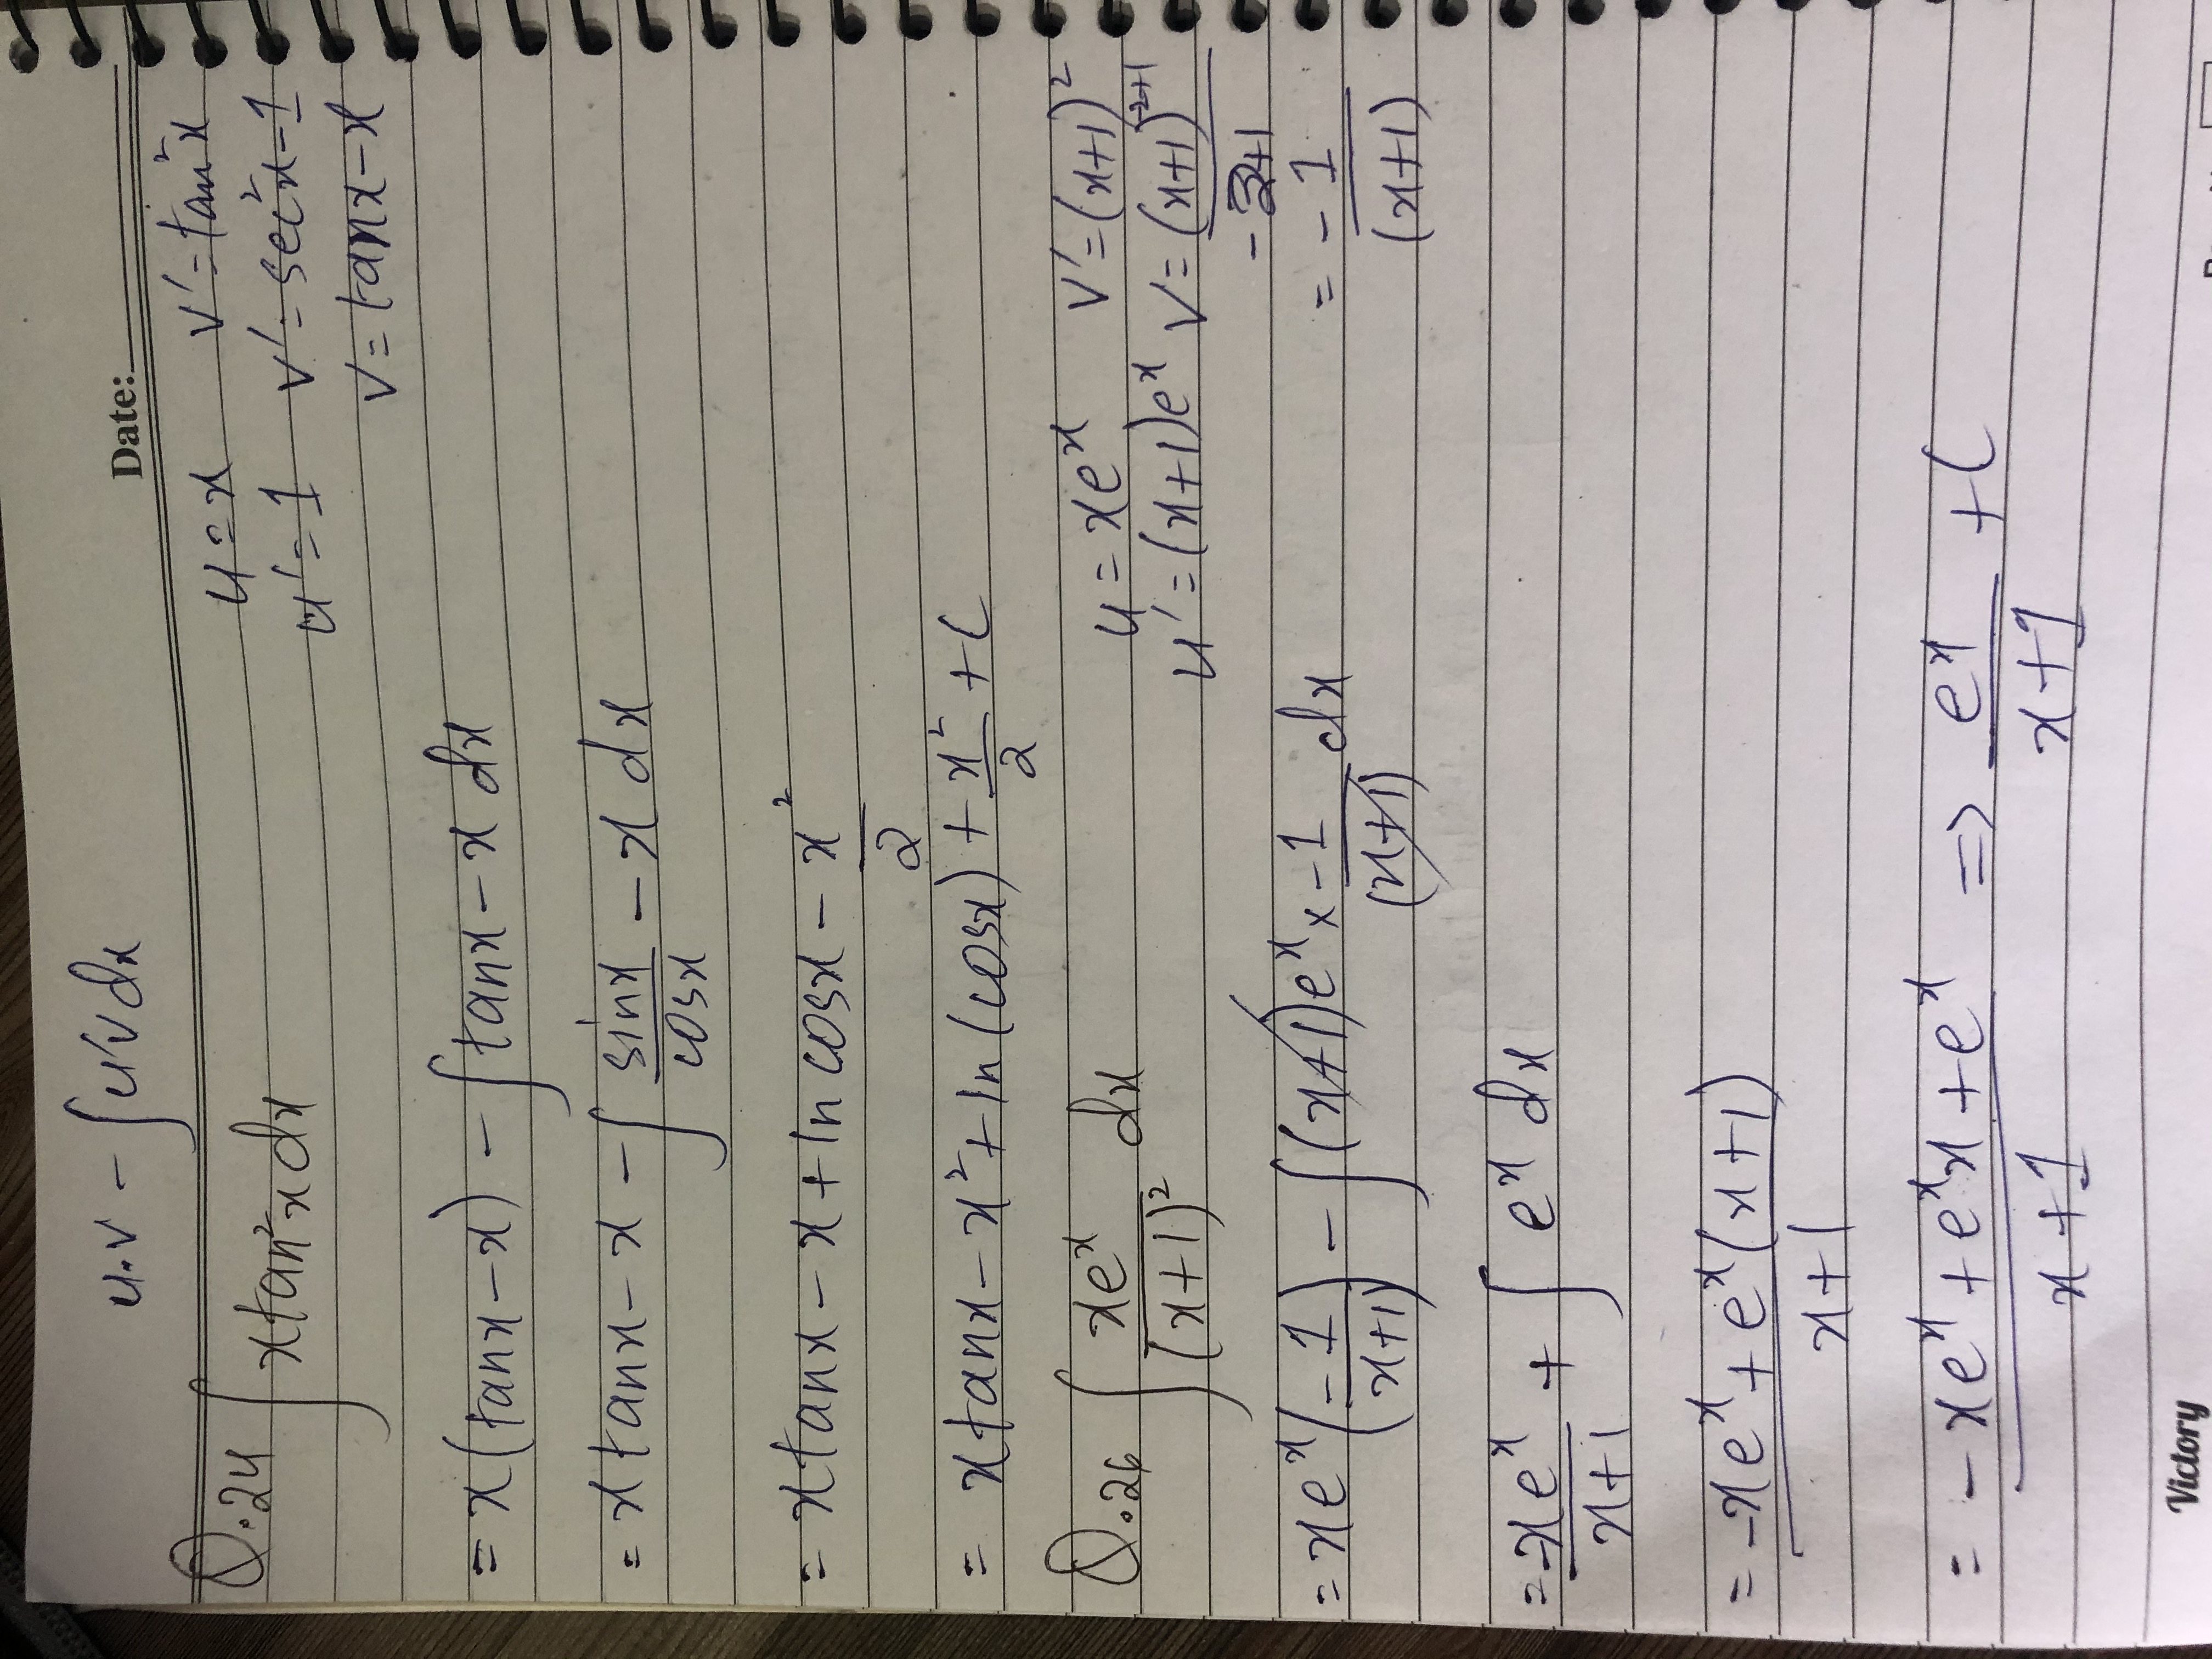 u.v - ∫u'v dx
Date:
Q.24 ∫ x tan²x dx
u = x    v' = tan²x
u' = 1    v' = sec²x - 1
v = tanx - x
= x (tanx - x) - ∫ tanx - x dx
= x tanx - x - ∫ sinx/cosx - x dx
= x tanx - x + ln cosx - x²/2
= x tanx - x² + ln (cosx) + x²/2 + C
Q.26 ∫ xeˣ/(x+1)² dx
u = xeˣ    v' = (x+1)²
u' = (x+1)eˣ    v = (x+1)⁻²⁺¹/-2+1
= xeˣ (-1/x+1) - ∫ (x+1)eˣ × -1/(x+1) dx
= -1/(x+1)
= -xeˣ/x+1 + ∫ eˣ dx
= -xeˣ + eˣ(x+1)/x+1
= -xeˣ + eˣx + eˣ/x+1 ⇒ eˣ/x+1 + C
Victory